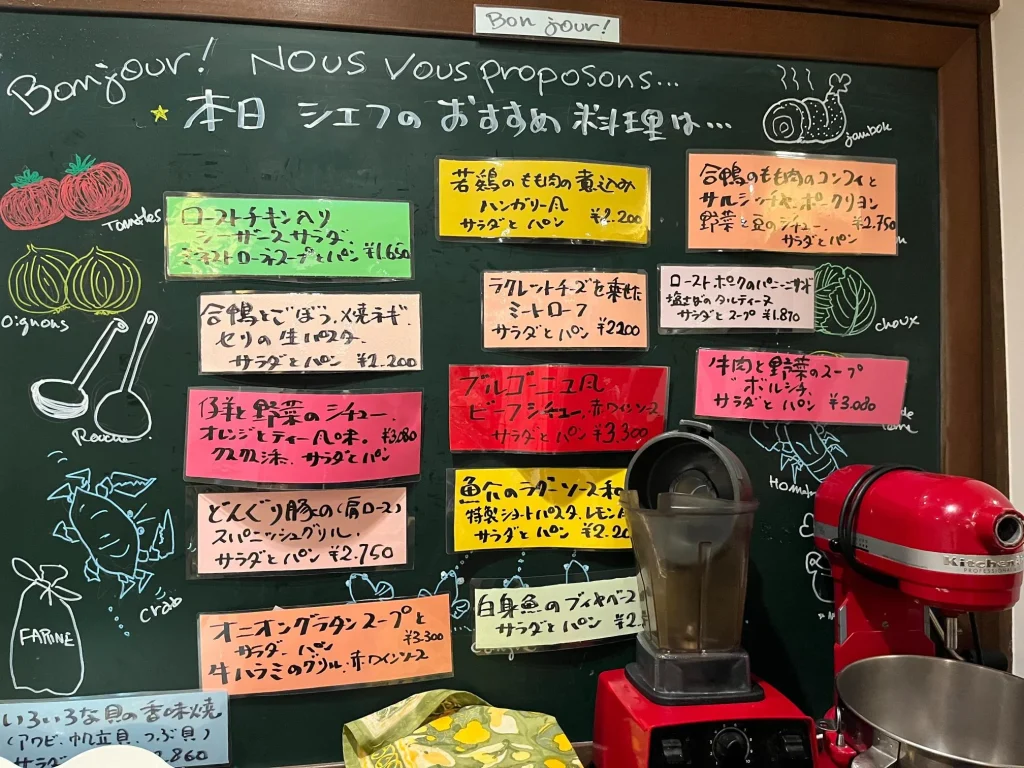 Bon jour!
Bonjour! Nous vous proposons...
本日 シェフの おすすめ 料理は…
jambon
Tomates
Oignons
crab
FARINE
choux
ローストチキン入り
シーザースサラダ.
ミネストローネスープとパン ¥1.650
合鴨とごぼう、焼ネギ.
セリの生パスタ.
サラダとパン ¥2.200
仔羊と野菜のシチュー.
オレンジとティー風味. ¥3.080
クスクス添. サラダとパン
どんぐり豚の(肩ロース)
スパニッシュグリル.
サラダとパン ¥2.750
オニオングラタンスープと
サラダ. パン ¥3.300
牛ハラミのグリル.赤ワインソース
いろいろな貝の香味焼
(アワビ、帆立貝、つぶ貝)
サラダ
.860
若鶏のもも肉の煮込み
ハンガリー風
サラダとパン ¥2.200
ラクレットチーズを乗せた
ミートローフ
サラダとパン ¥2200
ブルゴーニュ風
ビーフシチュー.赤ワインソース
サラダとパン ¥3.300
魚介のラグーソース和
特製ショートパスタ.レモン
サラダとパン ¥2.20
白身魚のブイヤベース
サラダとパン ¥2.
合鴨のもも肉のコンフィと
サルシッチャ.ポークリヨン
野菜と豆のシチュー. ¥2.750
サラダとパン
ローストポークのパニーニサンド
塩さばのタルティーヌ
サラダとスープ ¥1.870
牛肉と野菜のスープ
ボルシチ.
サラダとパン ¥3.080
Homa
KitchenA
PROFESSIONAL